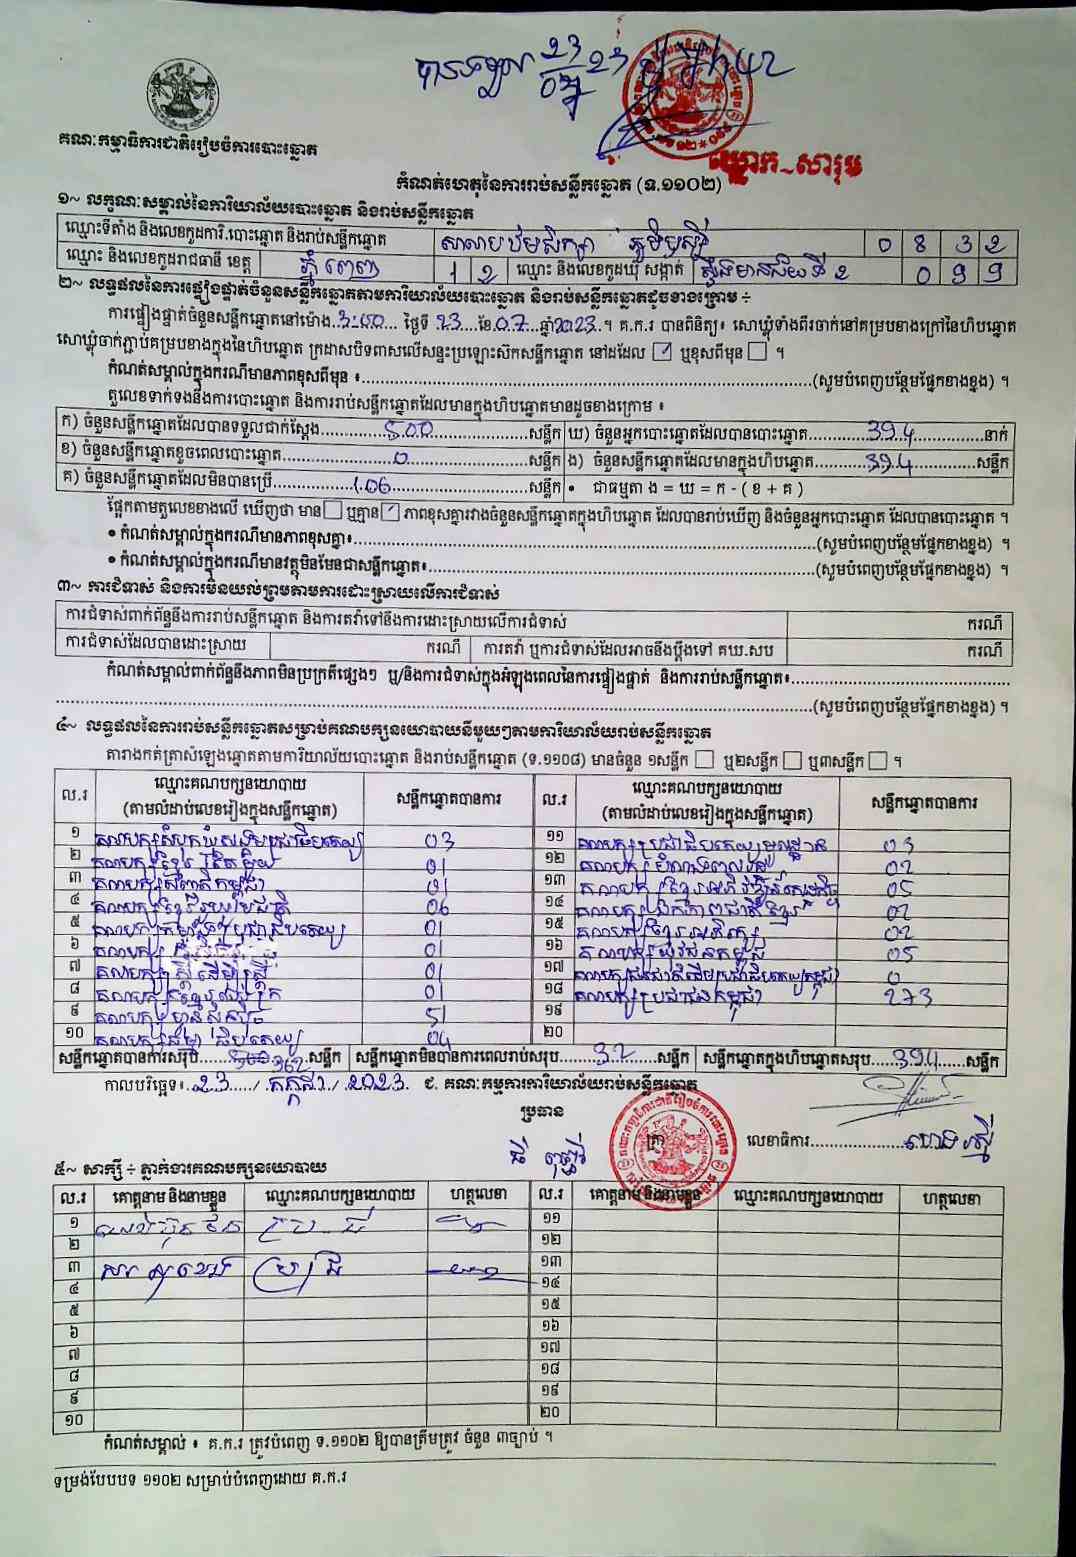 បានទទួល 23
23
គណៈកម្មាធិការជាតិរៀបចំការបោះឆ្នោត
កំណត់ហេតុនៃការរាប់សន្លឹកឆ្នោត (ទ.១១០២)
១~ លក្ខណៈសម្គាល់នៃការិយាល័យបោះឆ្នោត និងរាប់សន្លឹកឆ្នោត
ឈ្មោះទីតាំង និងលេខកូដការិ.បោះឆ្នោត និងរាប់សន្លឹកឆ្នោត សាលាបឋមសិក្សា ភូមិឫស្សី 0 8 3 2
ឈ្មោះ និងលេខកូដរាជធានី ខេត្ត ភ្នំពេញ 1 2 ឈ្មោះ និងលេខកូដឃុំ សង្កាត់ ស្ទឹងមានជ័យទី 2 0 9 9
២~ លទ្ធផលនៃការផ្ទៀងផ្ទាត់ចំនួនសន្លឹកឆ្នោតតាមការិយាល័យបោះឆ្នោត និងរាប់សន្លឹកឆ្នោតដូចខាងក្រោម ÷
ការផ្ទៀងផ្ទាត់ចំនួនសន្លឹកឆ្នោតនៅម៉ោង 3:00 ថ្ងៃទី 23 ខែ 07 ឆ្នាំ 2023 ។ គ.ក.រ បានពិនិត្យ៖ សោឃ្លុំទាំងពីរចាក់នៅគម្របខាងក្រៅនៃហិបឆ្នោត
សោឃ្លុំចាក់ភ្ជាប់គម្របខាងក្នុងនៃហិបឆ្នោត ក្រដាសបិទពាសលើសន្ទះប្រឡោះស៊កសន្លឹកឆ្នោត នៅដដែល ឬខុសពីមុន ។
កំណត់សម្គាល់ក្នុងករណីមានភាពខុសពីមុន ៖ (សូមបំពេញបន្ថែមផ្នែកខាងខ្នង) ។
តួលេខទាក់ទងនឹងការបោះឆ្នោត និងការរាប់សន្លឹកឆ្នោតដែលមានក្នុងហិបឆ្នោតមានដូចខាងក្រោម ៖
ក) ចំនួនសន្លឹកឆ្នោតដែលបានទទួលជាក់ស្តែង 500 សន្លឹក ឃ) ចំនួនអ្នកបោះឆ្នោតដែលបានបោះឆ្នោត 394 នាក់
ខ) ចំនួនសន្លឹកឆ្នោតខូចពេលបោះឆ្នោត 0 សន្លឹក ង) ចំនួនសន្លឹកឆ្នោតដែលមានក្នុងហិបឆ្នោត 394 សន្លឹក
គ) ចំនួនសន្លឹកឆ្នោតដែលមិនបានប្រើ 106 សន្លឹក • ជាធម្មតា ង = ឃ = ក - ( ខ + គ )
ផ្អែកតាមតួលេខខាងលើ ឃើញថា មាន ឬគ្មាន ភាពខុសគ្នារវាងចំនួនសន្លឹកឆ្នោតក្នុងហិបឆ្នោត ដែលបានរាប់ឃើញ និងចំនួនអ្នកបោះឆ្នោត ដែលបានបោះឆ្នោត ។
• កំណត់សម្គាល់ក្នុងករណីមានភាពខុសគ្នា៖ (សូមបំពេញបន្ថែមផ្នែកខាងខ្នង) ។
• កំណត់សម្គាល់ក្នុងករណីមានវត្ថុមិនមែនជាសន្លឹកឆ្នោត៖ (សូមបំពេញបន្ថែមផ្នែកខាងខ្នង) ។
៣~ ការជំទាស់ និងការមិនយល់ព្រមតាមការដោះស្រាយលើការជំទាស់
ការជំទាស់ពាក់ព័ន្ធនឹងការរាប់សន្លឹកឆ្នោត និងការតវ៉ាទៅនឹងការដោះស្រាយលើការជំទាស់ ករណី
ការជំទាស់ដែលបានដោះស្រាយ ករណី ការតវ៉ា ឬការជំទាស់ដែលអាចនឹងប្តឹងទៅ គឃ.សប ករណី
កំណត់សម្គាល់ពាក់ព័ន្ធនឹងភាពមិនប្រក្រតីផ្សេងៗ ឬ/និងការជំទាស់ក្នុងអំឡុងពេលនៃការផ្ទៀងផ្ទាត់ និងការរាប់សន្លឹកឆ្នោត៖
(សូមបំពេញបន្ថែមផ្នែកខាងខ្នង) ។
៤~ លទ្ធផលនៃការរាប់សន្លឹកឆ្នោតសម្រាប់គណបក្សនយោបាយនីមួយៗតាមការិយាល័យរាប់សន្លឹកឆ្នោត
តារាងកត់ត្រាសំឡេងឆ្នោតតាមការិយាល័យបោះឆ្នោត និងរាប់សន្លឹកឆ្នោត (ទ.១១០៨) មានចំនួន ១សន្លឹក ឬ២សន្លឹក ឬ៣សន្លឹក ។
ល.រ ឈ្មោះគណបក្សនយោបាយ (តាមលំដាប់លេខរៀងក្នុងសន្លឹកឆ្នោត) សន្លឹកឆ្នោតបានការ ល.រ ឈ្មោះគណបក្សនយោបាយ (តាមលំដាប់លេខរៀងក្នុងសន្លឹកឆ្នោត) សន្លឹកឆ្នោតបានការ
១ គណបក្សសំបុកឃ្មុំសង្គមប្រជាធិបតេយ្យ 03 ១១ គណបក្សប្រជាធិបតេយ្យមូលដ្ឋាន 03
២ គណបក្សខ្មែរ 01 ១២ គណបក្ស 02
៣ គណបក្សសញ្ជាតិកម្ពុជា 01 ១៣ គណបក្សខ្មែរអភិវឌ្ឍន៍សេដ្ឋកិច្ច 05
៤ គណបក្សខ្មែររួបរួមជាតិ 06 ១៤ គណបក្សឯកភាពជាតិខ្មែរ 02
៥ គណបក្ស ប្រជាធិបតេយ្យ 01 ១៥ គណបក្សខ្មែរអភិរក្ស 02
៦ គណបក្ស 01 ១៦ គណបក្សយុវជនកម្ពុជា 05
៧ គណបក្សស្ត្រីដើម្បីស្ត្រី 01 ១៧ គណបក្សជនជាតិដើមប្រជាធិបតេយ្យកម្ពុជា 0
៨ គណបក្ស 01 ១៨ គណបក្សប្រជាជនកម្ពុជា 273
៩ គណបក្សហ៊្វុនស៊ិនប៉ិច 51 ១៩
១០ គណបក្សធម្មាធិបតេយ្យ 04 ២០
សន្លឹកឆ្នោតបានការសរុប 362 សន្លឹក សន្លឹកឆ្នោតមិនបានការពេលរាប់សរុប 32 សន្លឹក សន្លឹកឆ្នោតក្នុងហិបឆ្នោតសរុប 394 សន្លឹក
កាលបរិច្ឆេទ៖ 23 / កក្កដា / 2023 ជ. គណៈកម្មការការិយាល័យរាប់សន្លឹកឆ្នោត
ប្រធាន
ត្រា លេខាធិការ
៥~ សាក្សី ÷ ភ្នាក់ងារគណបក្សនយោបាយ
ល.រ គោត្តនាម និងនាមខ្លួន ឈ្មោះគណបក្សនយោបាយ ហត្ថលេខា ល.រ គោត្តនាម និងនាមខ្លួន ឈ្មោះគណបក្សនយោបាយ ហត្ថលេខា
១ ១១
២ ១២
៣ ១៣
៤ ១៤
៥ ១៥
៦ ១៦
៧ ១៧
៨ ១៨
៩ ១៩
១០ ២០
កំណត់សម្គាល់ ៖ គ.ក.រ ត្រូវបំពេញ ទ.១១០២ ឱ្យបានត្រឹមត្រូវ ចំនួន ៣ច្បាប់ ។
ទម្រង់បែបបទ ១១០២ សម្រាប់បំពេញដោយ គ.ក.រ